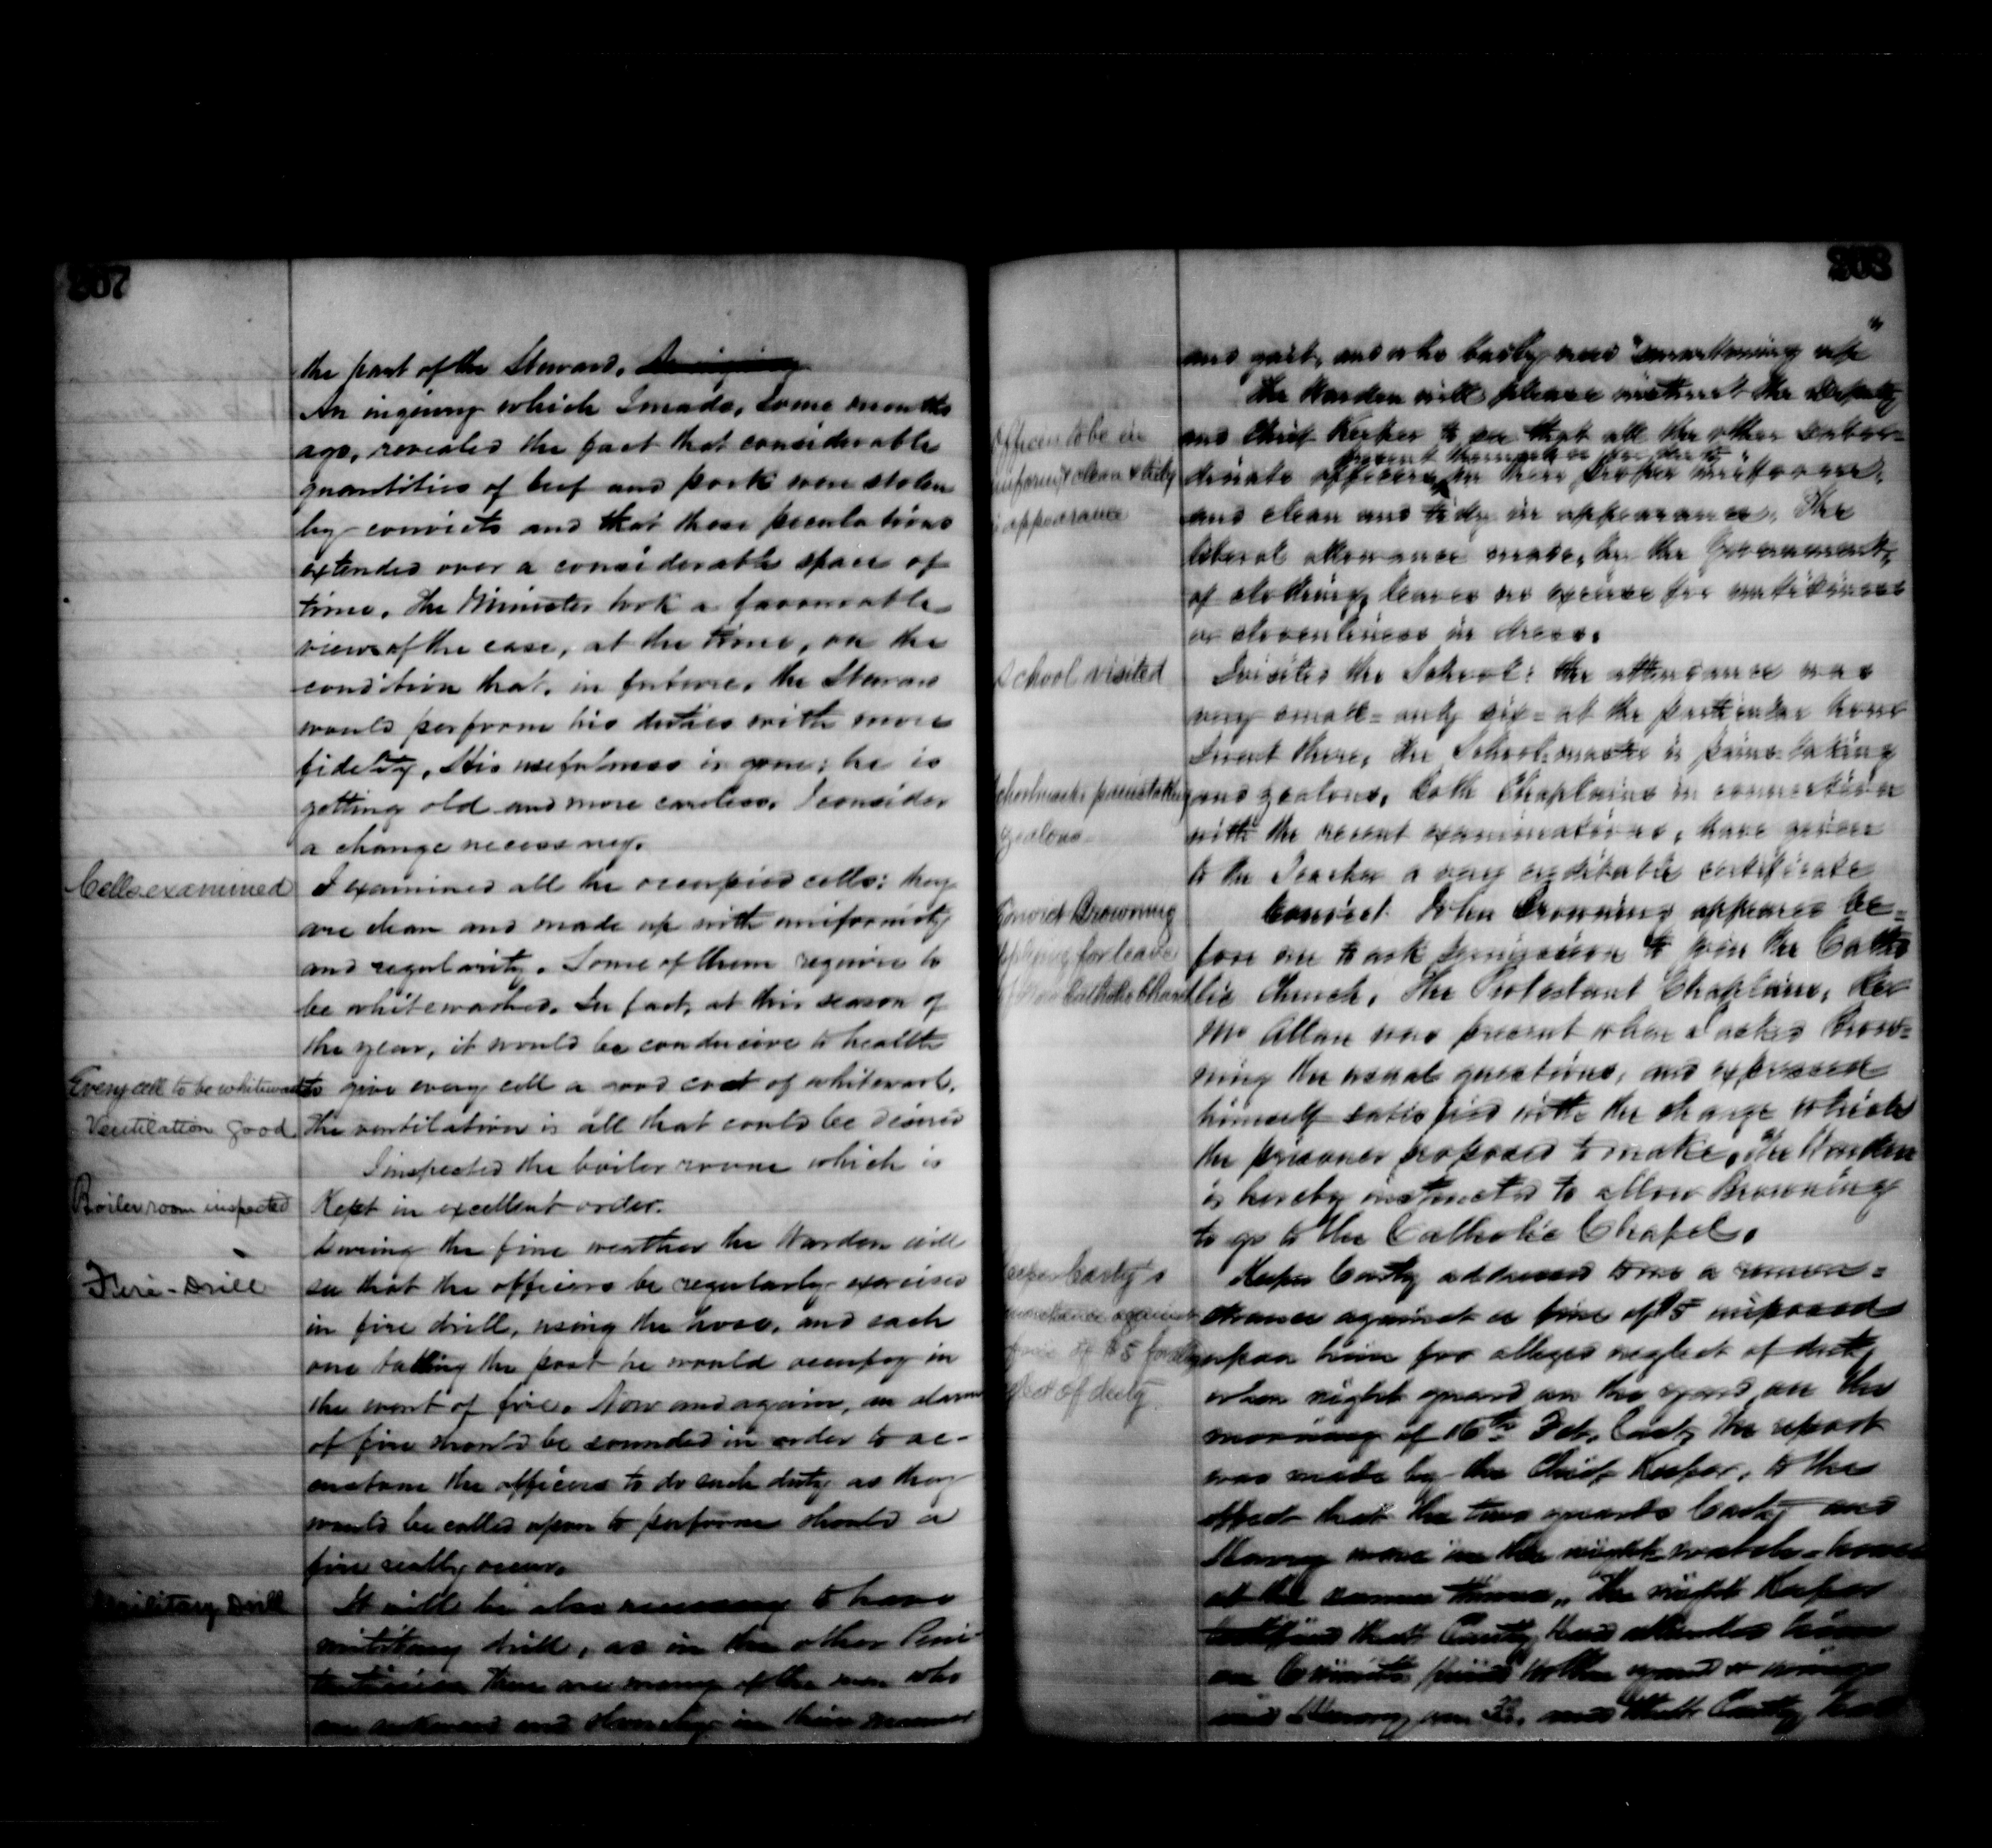 207
the part of the Steward.
An inquiry which I made, some months
ago, revealed the fact that considerable
quantities of beef and pork were stolen
by convicts and that these peculations
extended over a considerable space of
time. The Minister took a favourable
view of the case, at the time, on the
condition that, in future, the Steward
would perform his duties with more
fidelity. His usefulness is gone; he is
getting old and more careless. I consider
a change necessary.
Cells examined
I examined all the occupied cells: they
are clean and made up with uniformity
and regularity. Some of them require to
be whitewashed. In fact, at this season of
the year, it would be conducive to health
Every cell to be whitewashed
to give every cell a good coat of whitewash.
Ventilation good
The ventilation is all that could be desired
I inspected the boiler room which is
Boiler room inspected
Kept in excellent order.
During the fine weather the Warden will
Fire-Drill
see that the officers be regularly exercised
in fire drill, using the hose, and each
one taking the post he would occupy in
the event of fire. Now and again, an alarm
of fire should be sounded in order to ac-
custom the officers to do such duty as they
would be called upon to perform should a
fire really occur.
Military Drill
It will be also necessary to have
military drill, as in the other Peni-
tentiaries. There are many of the men who
are awkward and slovenly in their manner
208
and gait, and who badly need "smartening up"
The Warden will please instruct the Deputy
Officers to be in
and Chief Keeper to see that all the other subor-
present themselves for duty
uniform & clean & tidy
dinate officers in their proper uniform,
in appearance
and clean and tidy in appearance. The
liberal allowance made, by the Government,
of clothing leaves no excuse for untidiness
or slovenliness in dress.
School visited
I visited the School: the attendance was
very small = only six = at the particular hour
I went there. The School-master is pains-taking
Schoolmaster painstaking
and zealous. Both Chaplains in connection
zealous
with the recent examinations, have given
to the Teacher a very creditable certificate
Convict Browning
Convict John Browning appeared be=
applying for leave
fore me to ask permission to join the Catho
Catholic Church
lic Church. The Protestant Chaplain, Rev
Mr Allan was present when I asked Brow=
ning the usual questions, and expressed
himself satisfied with the change which
the prisoner proposed to make. The Warden
is hereby instructed to allow Browning
to go to the Catholic Chapel.
Keeper Carty's
Keeper Carty addressed to me a remon=
remonstrance against
strance against a fine of $5 imposed
fine of $5 for neg
upon him for alleged neglect of duty
lect of duty
when night guard on the yard, on the
morning of 16th Oct. last, the report
was made by the Chief Keeper, to the
effect that the two guards Carty and
were in the night watch-house
at the same time. The night Keeper
testified that Carty had
and that Carty had